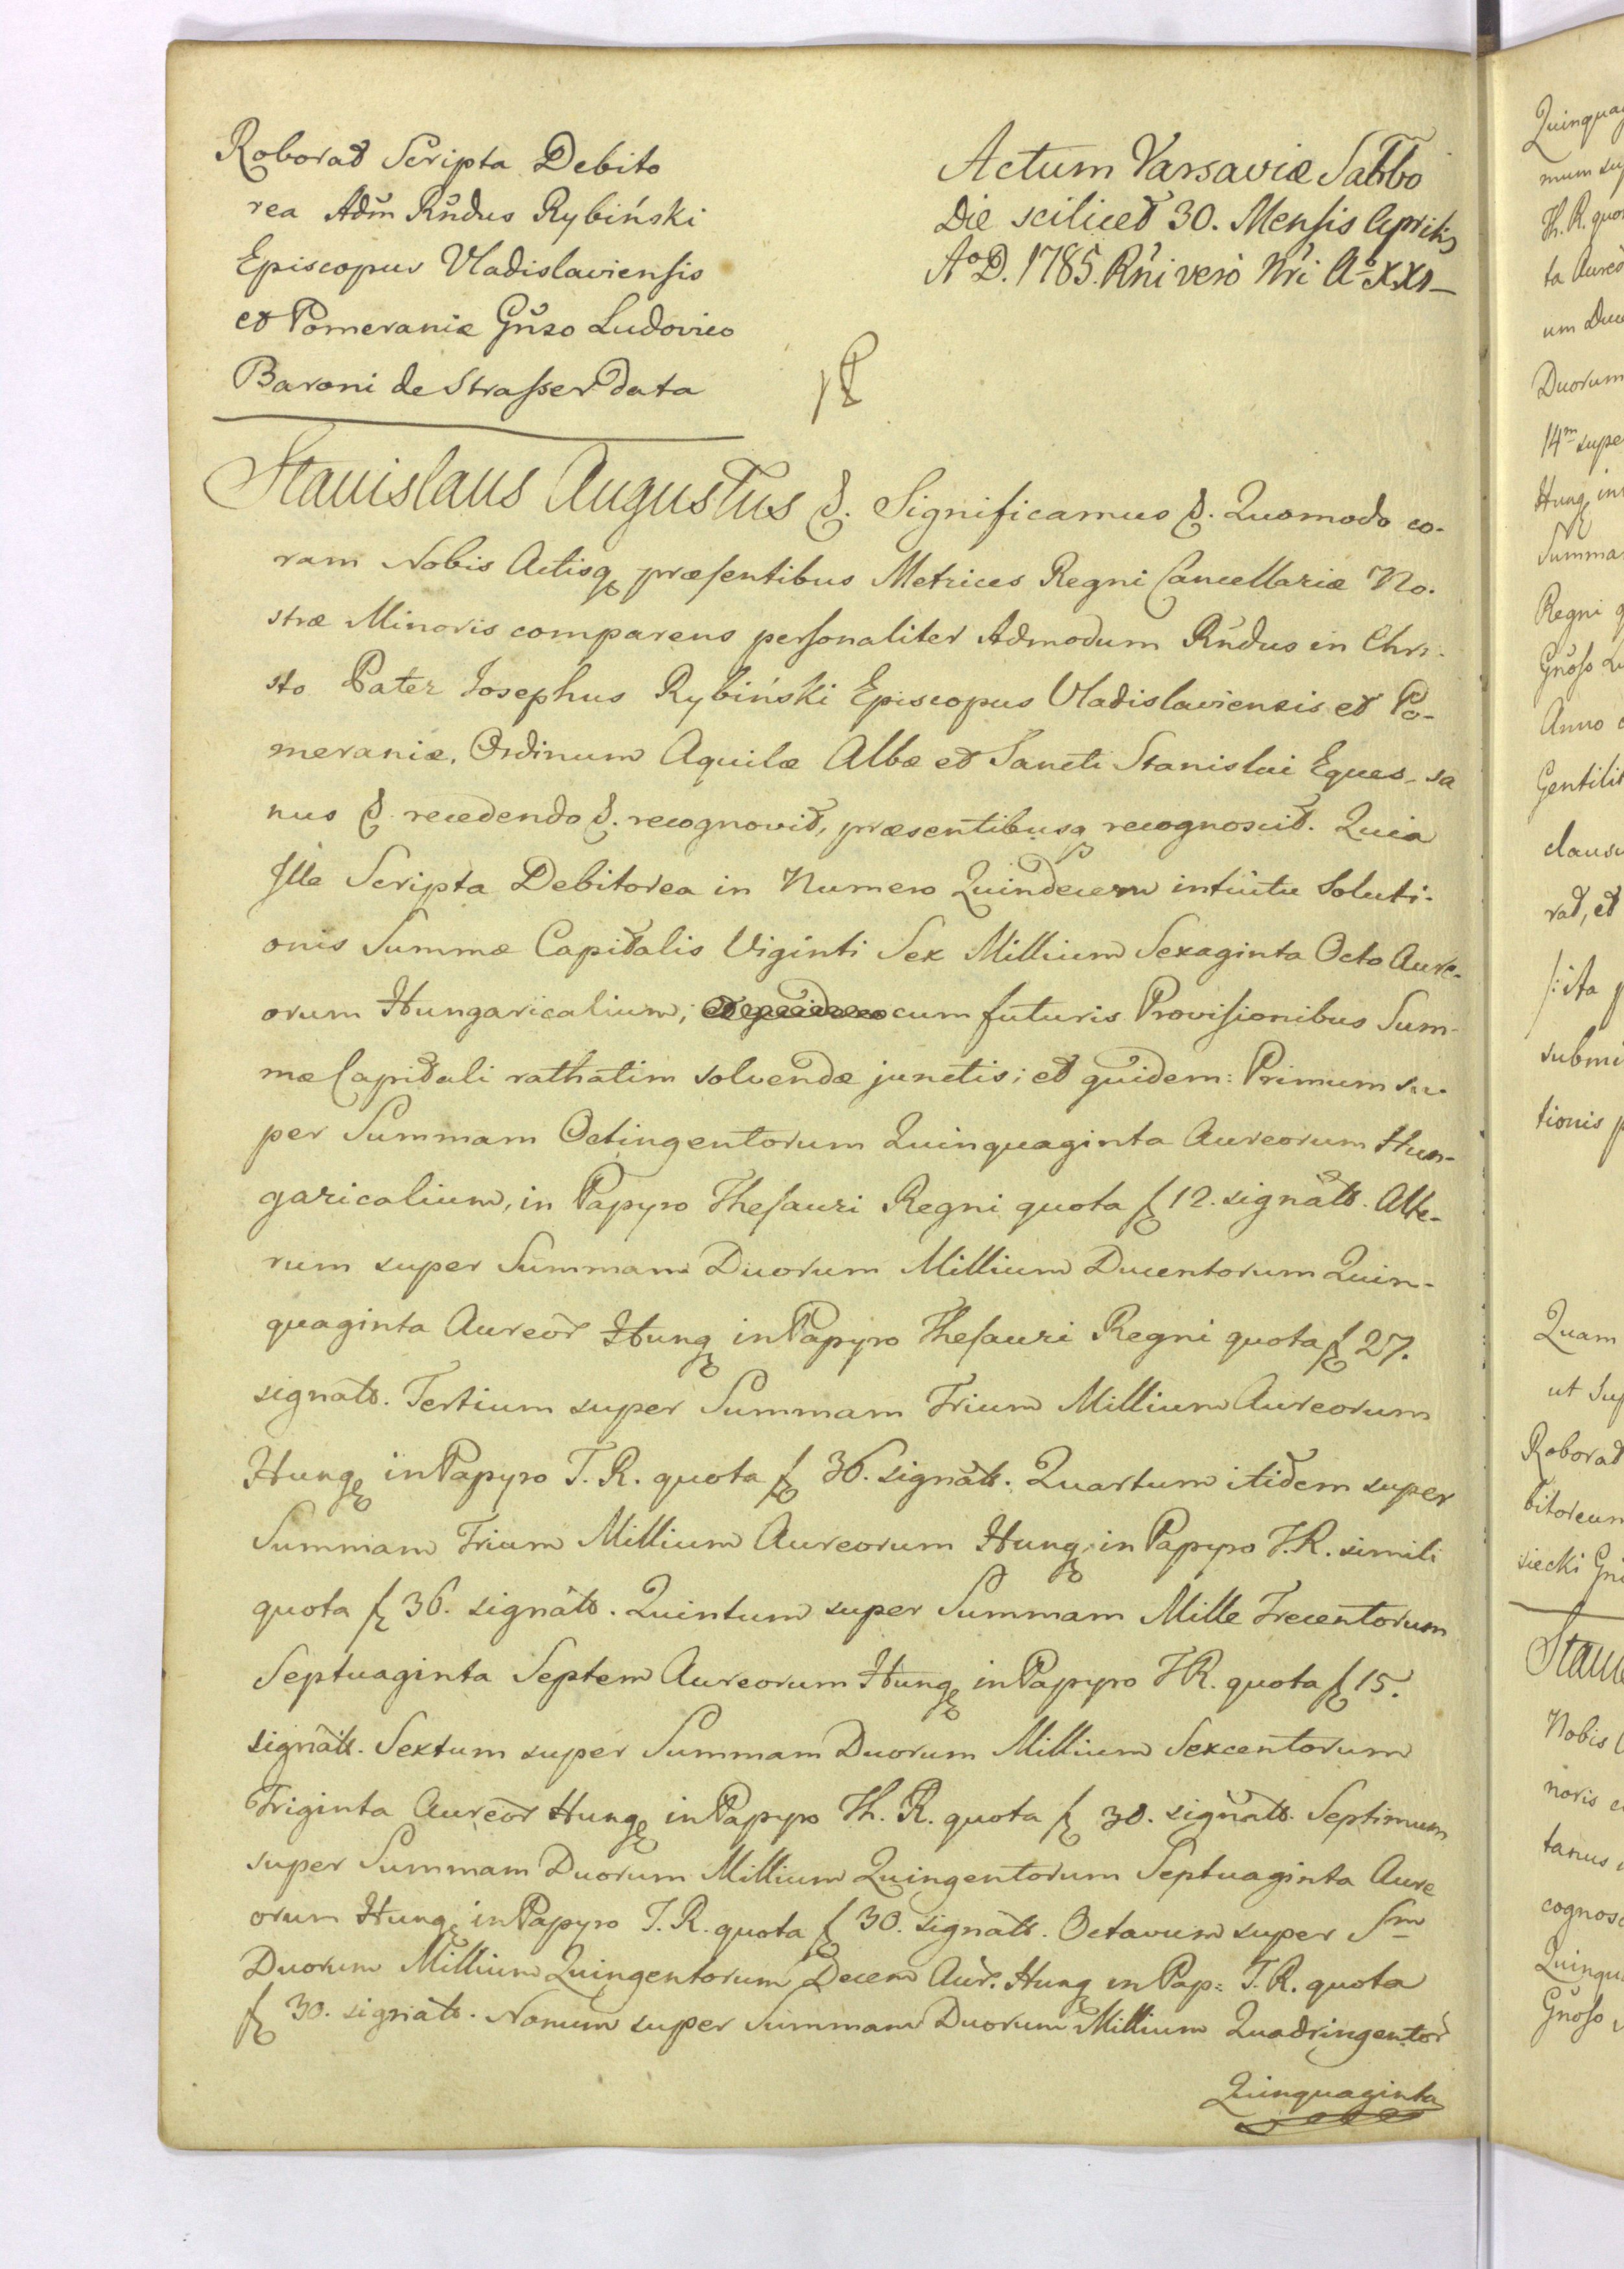 Roborat Scripta Debito
rea Adm̃ Rñdus Rybiński
Episcopus Vladislaviensis
et Pomeraniæ Gñso Ludovico
Baroni de Strasser data
Actum Varsaviæ Sabbo
Die scilicet 30. Mensis Aprilis
Aº D. 1785. Rñi vero Nri Aº XXI
Stanislaus Augustus &. Significamus &. Quomodo co-
ram Nobis Actisq præsentibus Metrices Regni Cancellariæ No-
stræ Minoris comparens personaliter Admodum Rñdus in Chri-
sto Pater Josephus Rybiński Episcopus Vladislaviensis et Po-
meraniæ, Ordinum Aquilæ Albæ et Sancti Stanislai Eques, sa
nus &. recedendo &. recognovit, præsentibusq recognoscit. Quia
Ille Scripta Debitorea in Numero Quindecem intuitu Soluti-
onis Summæ Capitalis Viginti Sex Millium Sexaginta Octo Aure-
orum Hungaricalium; cum futuris Provisionibus Sum-
mæ Capitali rathatim solvendæ junctis; et quidem: Primum su-
per Summam Octingentorum Quinquaginta Aureorum Hun-
garicalium, in Papyro Thesauri Regni quota f 12. signãto. Alte-
rum super Summam Duorum Millium Ducentorum Quin-
quaginta Aureor̃ Hung in Papyro Thesauri Regni quota f 27.
signato. Tertium super Summam Trium Millium Aureorum
Hung in Papyro T. R. quota f 36. signãto. Quartum itidem super
Summam Trium Millium Aureorum Hung in Papyro T. R. simili
quota f 36. signãto. Quintum super Summam Mille Trecentorum
Septuaginta Septem Aureorum Hung in Papyro T R. quota f 15.
signãto. Sextum super Summam Duorum Millium Sexcentorum
Triginta Aureor̃ Hung in Papyro Th. R. quota f 30. signãto. Septimum
super Summam Duorum Millium Quingentorum Septuaginta Aure
orum Hung in Papyro T. R. quota f 30. signãto. Octavum super Sm̃
Duorum Millium Quingentorum Decem Aur̃. Hung in Pap: T. R. quota
f 30. signãto. Nonum super Summam Duorum Millium Quadringentor̃
Quinquaginta